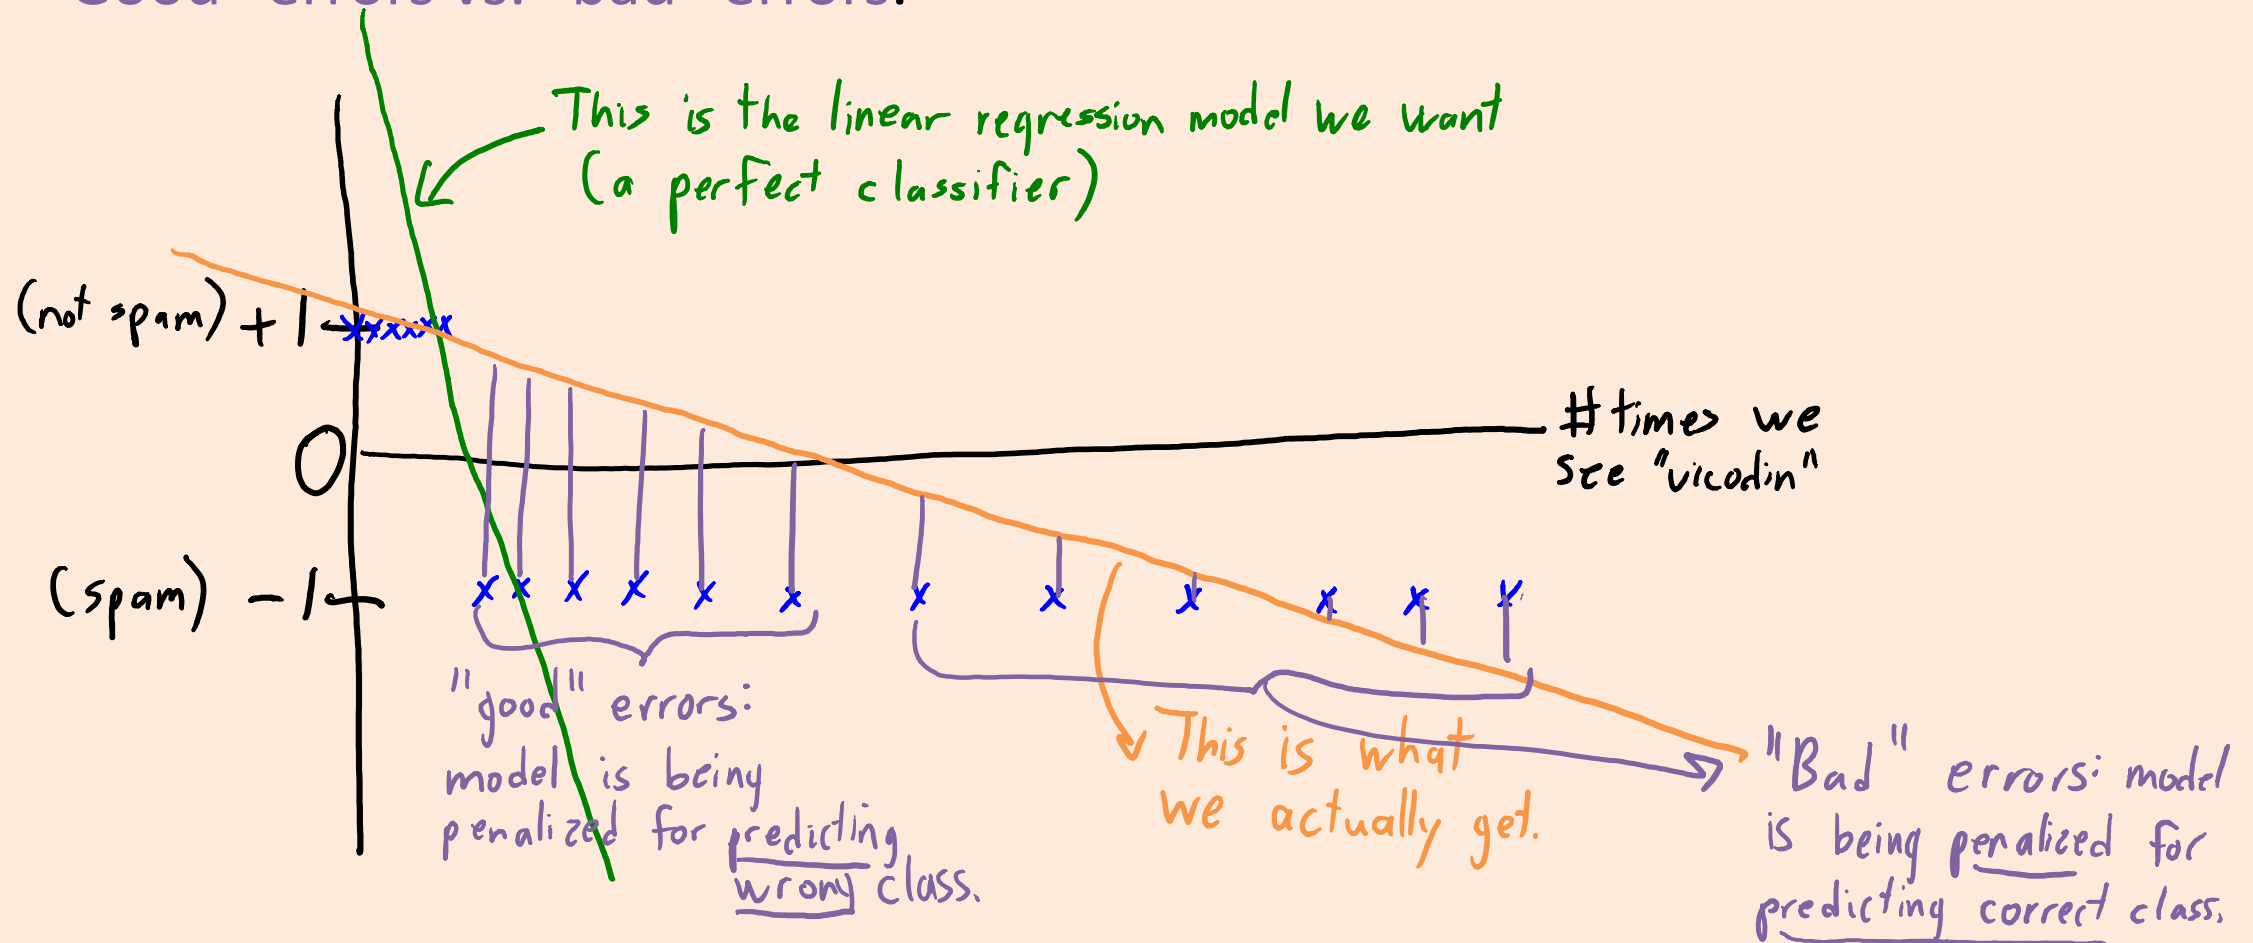 "Good" errors vs. "bad" errors.
This is the linear regression model we want
(a perfect classifier)
(not spam) +1
# times we
see "vicodin"
0
(spam) -1
"good" errors:
model is being
penalized for predicting
wrong class.
This is what
we actually get.
"Bad" errors: model
is being penalized for
predicting correct class.